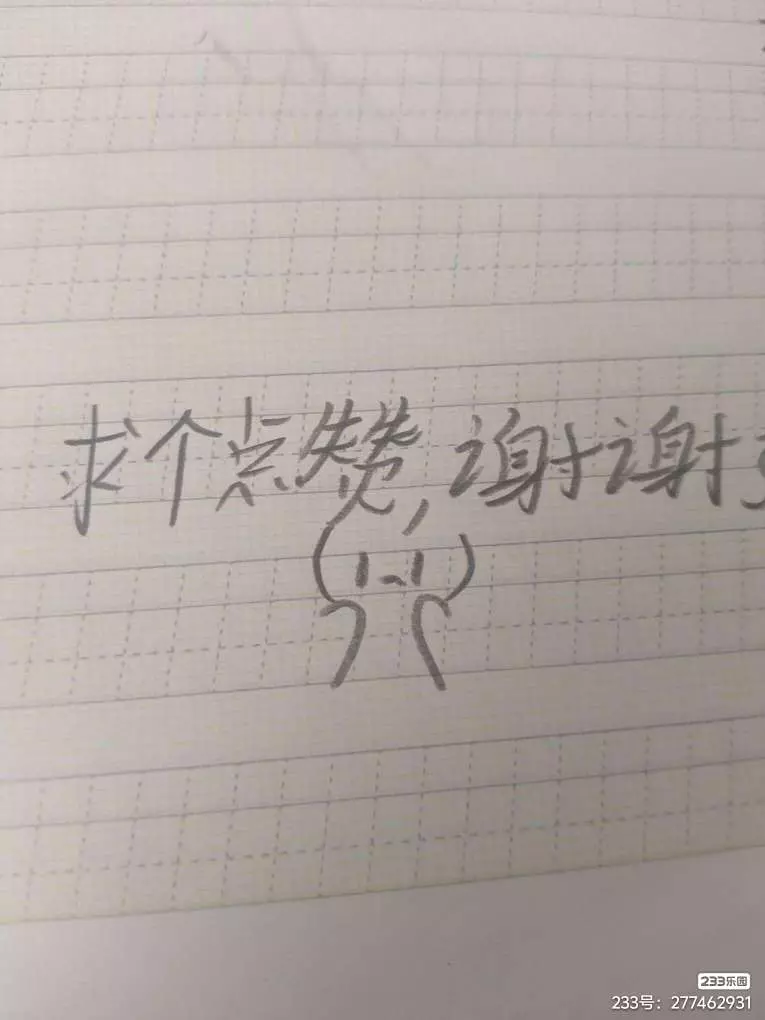 求个点赞,谢谢
233乐园
233号：277462931